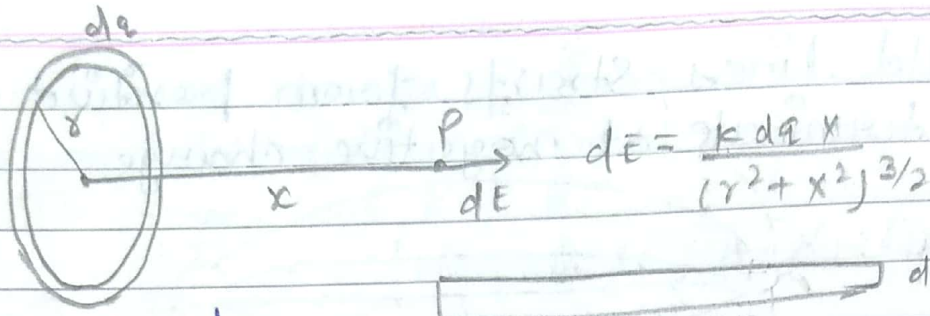 dq
r
P
x
dE
dE = k dq x / (r² + x²)^3/2
d